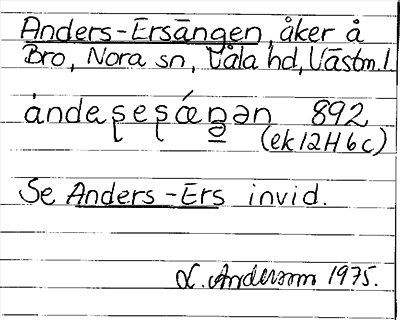 Anders-Ersängen, åker å
Bro, Nora sn, Våla hd, Västm.l.
ándeʂeʂǽŋ̠ən 892
(ek 12H 6c)
Se Anders-Ers invid.
L. Andersson 1975.